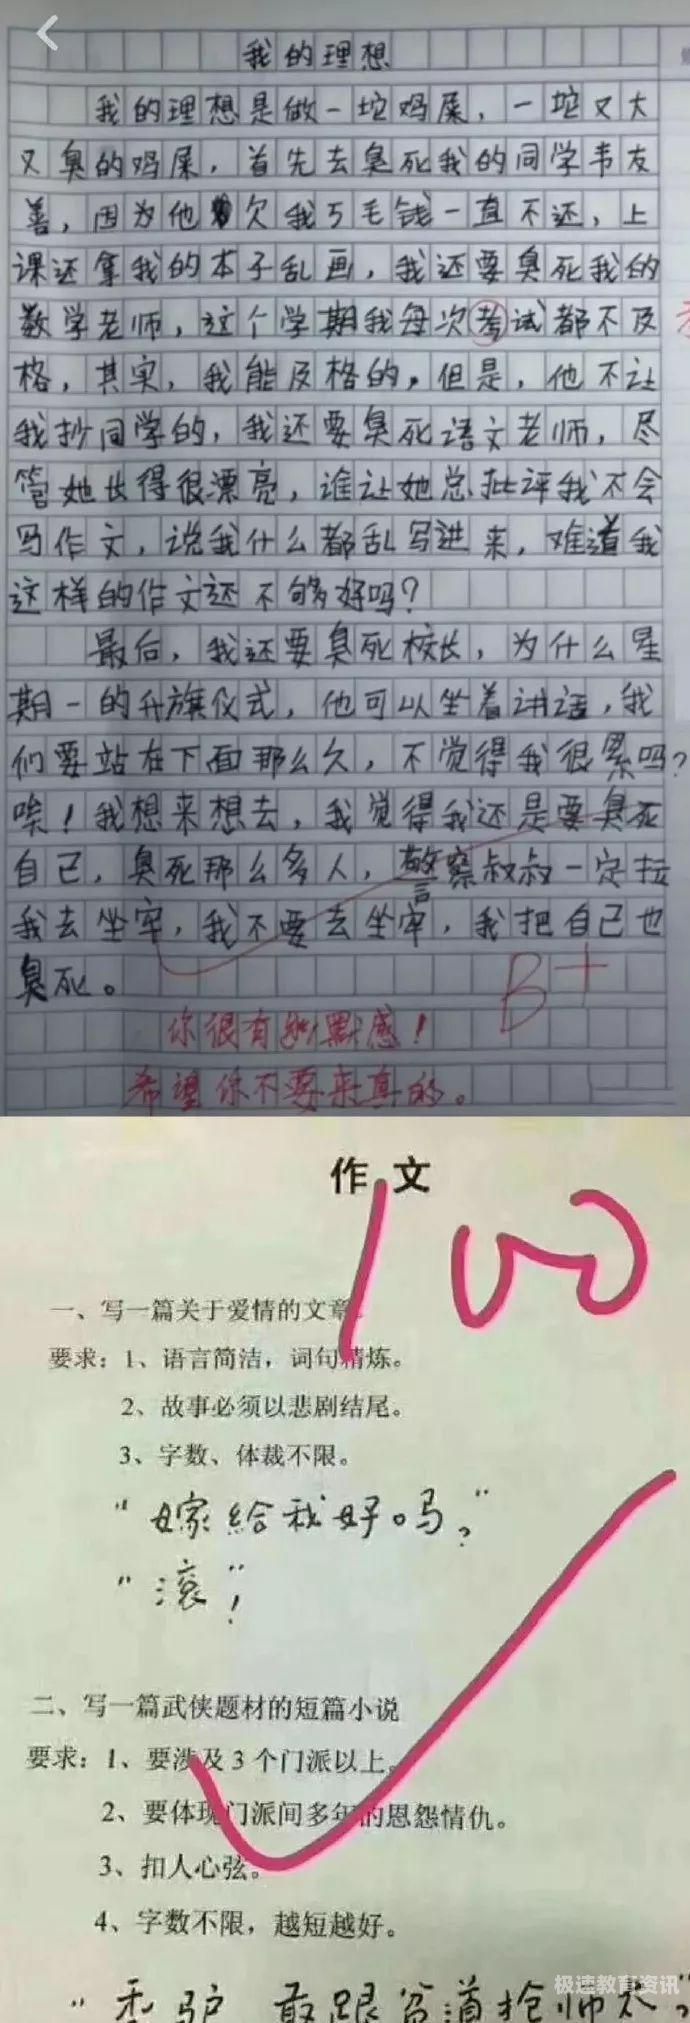 我的理想
我的理想是做一坨鸡屎，一坨又大
又臭的鸡屎，首先去臭死我的同学韦友
善，因为他欠我5毛钱一直不还，上
课还拿我的本子乱画，我还要臭死我的
数学老师，这个学期我每次考试都不及
格，其实，我能及格的，但是，他不让
我抄同学的，我还要臭死语文老师，尽
管她长得很漂亮，谁让她总批评我不会
写作文，说我什么都乱写进来，难道我
这样的作文还不够好吗？
最后，我还要臭死校长，为什么星
期一的升旗仪式，他可以坐着讲话，我
们要站在下面那么久，不觉得我很累吗？
唉！我想来想去，我觉得我还是要臭死
自己，臭死那么多人，警察叔叔一定拉
我去坐牢，我不要去坐牢，我把自己也
臭死。
B+
你很有幽默感！
希望你不要来真的。
作文
100
一、写一篇关于爱情的文章。
要求：1、语言简洁，词句精炼。
2、故事必须以悲剧结尾。
3、字数、体裁不限。
“嫁给我好吗？”
“滚”！
二、写一篇武侠题材的短篇小说
要求：1、要涉及3个门派以上。
2、要体现门派间多年的恩怨情仇。
3、扣人心弦。
4、字数不限，越短越好。
极速教育资讯
“秃驴 敢跟贫道抢师太”